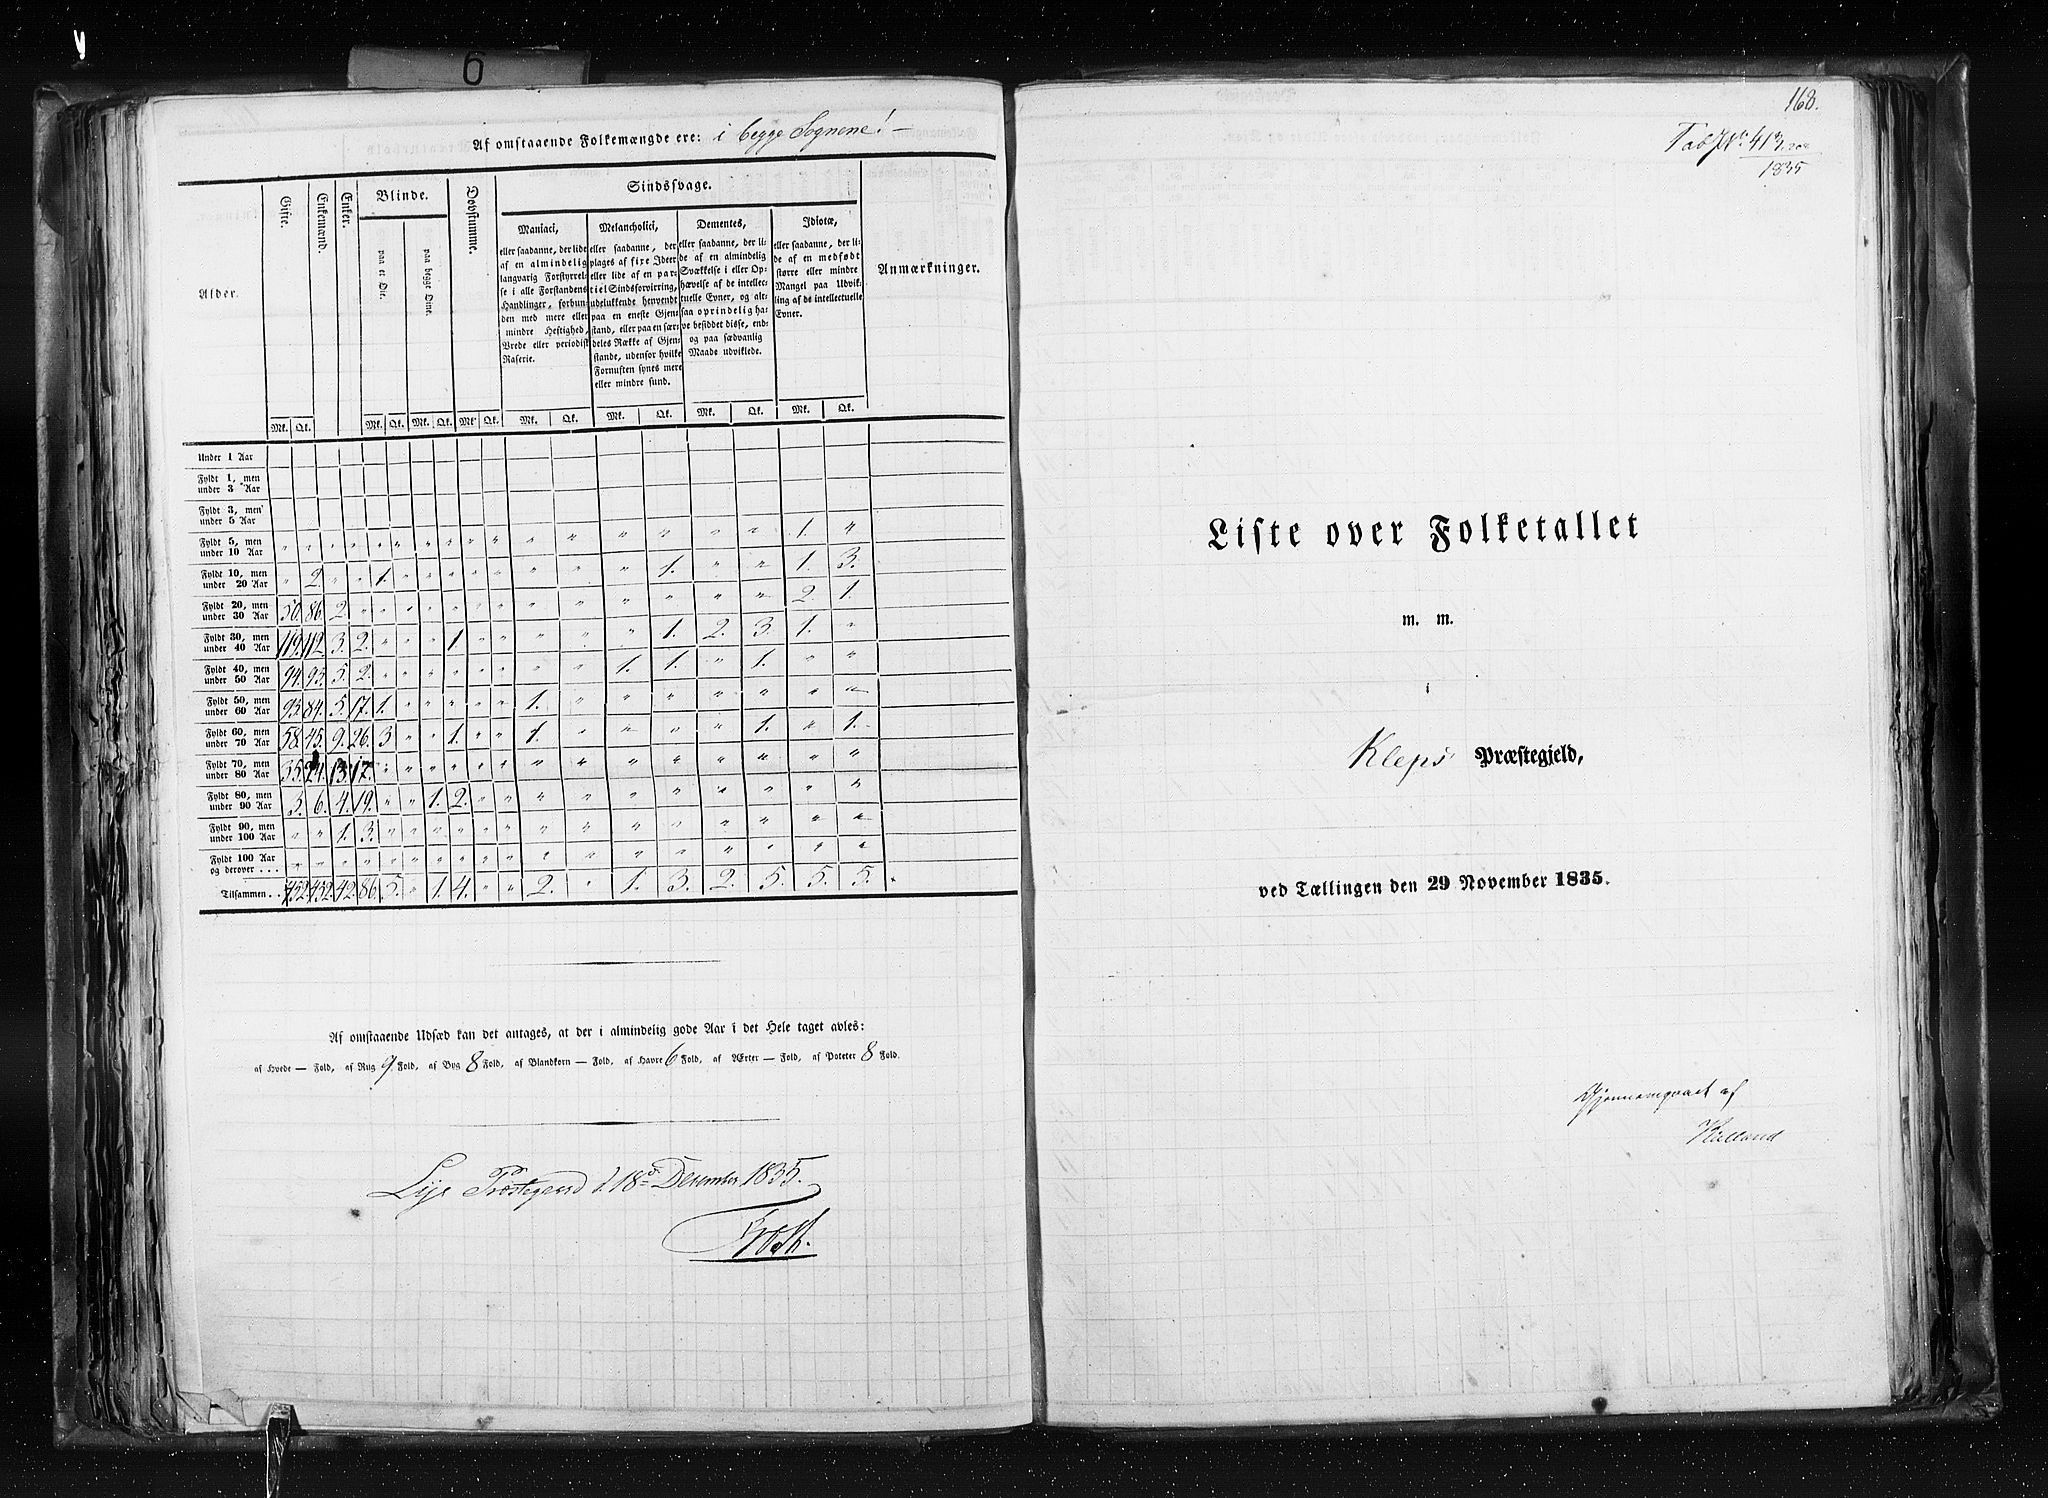 6
Af omstaaende Folkemængde ere: i begge Sognene! —
Alder.
Gifte.
Enkemænd.
Enker.
Blinde.
paa et Øie.
paa begge Øine.
Døvstumme.
Sindssvage.
Maniaci,
eller saadanne, der lide
af en almindelig
langvarig Forstyrrel-
se i alle Forstandens
Handlinger, forbun-
den med mere eller
mindre Heftighed,
Vrede eller periodisk
Raserie.
Melancholici,
eller saadanne, der
plages af fixe Ideer
eller lide af en par-
tiel Sindsforvirring,
udelukkende henvendt
paa en eneste Gjen-
stand, eller paa en sær-
deles Række af Gjen-
stande, udenfor hvilke
Fornuften synes mere
eller mindre sund.
Dementes,
eller saadanne, der li-
de af en almindelig
Svækkelse i eller Op-
hævelse af de intellec-
tuelle Evner, og alt-
saa oprindelig ha-
ve besiddet disse, end-
og paa sædvanlig
Maade udviklede.
Idiotæ,
eller saadanne, der li-
de af en medfødt
større eller mindre
Mangel paa Udvik-
ling af de intellectuelle
Evner.
Anmærkninger.
Mk. Qk. Mk. Qk. Mk. Qk. Mk. Qk. Mk. Qk. Mk. Qk. Mk. Qk. Mk. Qk.
Under 1 Aar
Fyldt 1, men
under 3 Aar
Fyldt 3, men
under 5 Aar
Fyldt 5, men
under 10 Aar " " " " " " " " " " " " " " " " 1. "
Fyldt 10, men
under 20 Aar " 2. " " 1. " " " " " " " " 1. " " 1. 3.
Fyldt 20, men
under 30 Aar 50. 86. 2. " " " " " " " " " " " " " 2. 1.
Fyldt 30, men
under 40 Aar 119. 112. 3. 2. " " " 1. " " " " " 1. 2. 3. 1. "
Fyldt 40, men
under 50 Aar 94. 93. 5. 2. " " " " " " " " 1. 1. " 1. " "
Fyldt 50, men
under 60 Aar 93. 84. 5. 17. 1. " " " " " 1. " " " " " " "
Fyldt 60, men
under 70 Aar 58. 45. 9. 26. 3 " " 1. " " 1. " " " " 1. " 1.
Fyldt 70, men
under 80 Aar 35. 24. 13. 17. " " " " " " " " " " " " " "
Fyldt 80, men
under 90 Aar 3. 6. 4. 19. " " 1. 2. " " " " " " " " " "
Fyldt 90, men
under 100 Aar " " 1. 3. " " " " " " " " " " " " " "
Fyldt 100 Aar
og derover . . . " " " " " " " " " " " " " " " " " "
Tilsammen . . 452. 452. 42. 86. 5. " 1. 4. " " 2. " 1. 3. 2. 5. 5. 5.
Af omstaaende Udsæd kan det antages, at der i almindelig gode Aar i det Hele taget avles:
af Hvede — Fold, af Rug 9 Fold, af Byg 8 Fold, af Blandkorn — Fold, af Havre 6 Fold, af Ærter — Fold, af Poteter 8 Fold.
Lye Præstegaard d. 18d December 1835.
168.
Tab J No 413
1835
Liste over Folketallet
m. m.
i
Kleps Præstegjeld,
ved Tællingen den 29 November 1835.
Gjennemgaaet af
Kielland